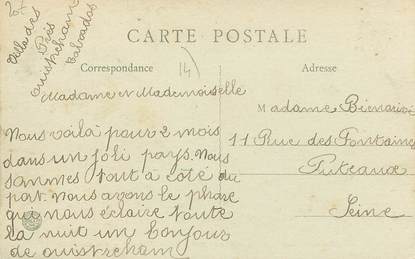 207
Villa des
Pins
Ouistreham
Calvados
CARTE POSTALE
Correspondance
Adresse
14)
Madame et Mademoiselle
Nous voilà pour 2 mois
dans un joli pays. Nous
sommes tout à côté du
port. Nous avons le phare
qui nous éclaire toute
la nuit un bonjour
de Ouistreham
Madame Bienaimé
11 Rue des Fontaines
Puteaux
Seine